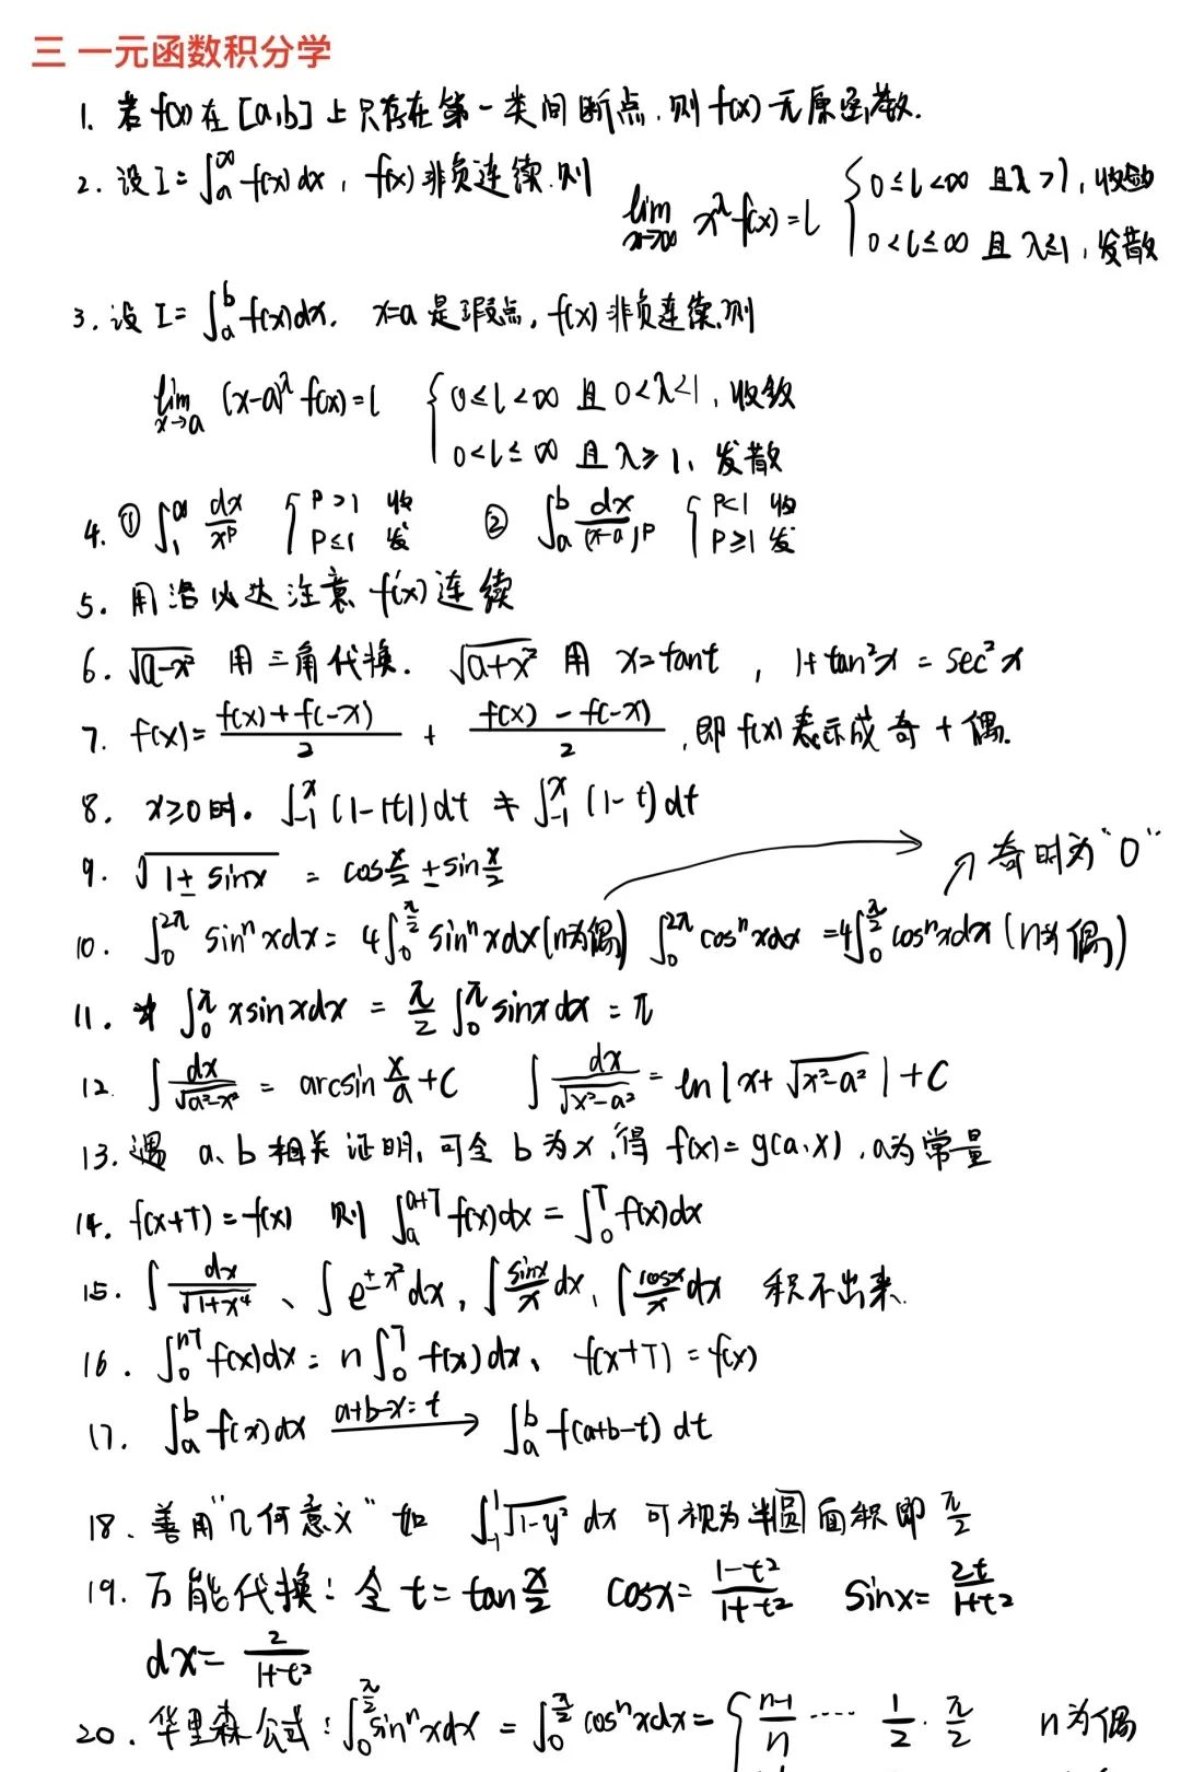 三 一元函数积分学
1. 若f(x)在[a,b]上只存在第一类间断点,则f(x)无原函数.
2. 设I=∫_a^∞ f(x)dx, f(x)非负连续.则 lim_{x→∞} x^λ f(x)=l { 0≤l<∞ 且λ>1,收敛
0<l≤∞ 且λ≤1,发散
3. 设I=∫_a^b f(x)dx. x=a是瑕点,f(x)非负连续,则
lim_{x→a} (x-a)^λ f(x)=l { 0≤l<∞ 且0<λ<1,收敛
0<l≤∞ 且λ≥1,发散
4. ① ∫_1^∞ dx/x^p { p>1 收 ② ∫_a^b dx/(x-a)^p { p<1 收
p≤1 发 p≥1 发
5. 用洛必达注意f'(x)连续
6. √(a-x²) 用三角代换. √(a+x²) 用 x=tant , 1+tan²x = sec²x
7. f(x)= (f(x)+f(-x))/2 + (f(x)-f(-x))/2 ,即f(x)表示成奇+偶.
8. x≥0时. ∫_{-1}^x (1-|t|)dt ≠ ∫_{-1}^x (1-t)dt
9. √(1±sinx) = cos x/2 ± sin x/2
奇时为"0"
10. ∫_0^{2π} sin^n xdx= 4∫_0^{π/2} sin^n xdx(n为偶) ∫_0^{2π} cos^n xdx =4∫_0^{π/2} cos^n xdx (n为偶)
11. ∫_0^π xsinxdx = π/2 ∫_0^π sinxdx = π
12. ∫ dx/√(a²-x²) = arcsin x/a +C ∫ dx/√(x²-a²) = ln|x+√(x²-a²)|+C
13. 遇 a、b相关证明,可令b为x,得 f(x)= g(a,x) ,a为常量
14. f(x+T)=f(x) 则 ∫_a^{a+T} f(x)dx = ∫_0^T f(x)dx
15. ∫ dx/√(1+x⁴) 、∫ e^{±x²}dx, ∫ sinx/x dx, ∫ cosx/x dx 积不出来.
16. ∫_0^{nT} f(x)dx= n∫_0^T f(x)dx、 f(x+T)=f(x)
17. ∫_a^b f(x)dx a+b-x=t → ∫_a^b f(a+b-t)dt
18. 善用"几何意义"如 ∫_{-1}^1 √(1-y²) dx 可视为半圆面积即 π/2
19. 万能代换: 令 t=tan x/2 cosx= (1-t²)/(1+t²) sinx= 2t/(1+t²)
dx= 2/(1+t²)
20. 华里森公式: ∫_0^{π/2} sin^n xdx = ∫_0^{π/2} cos^n xdx= { (n-1)/n ···· 1/2 · π/2 n为偶